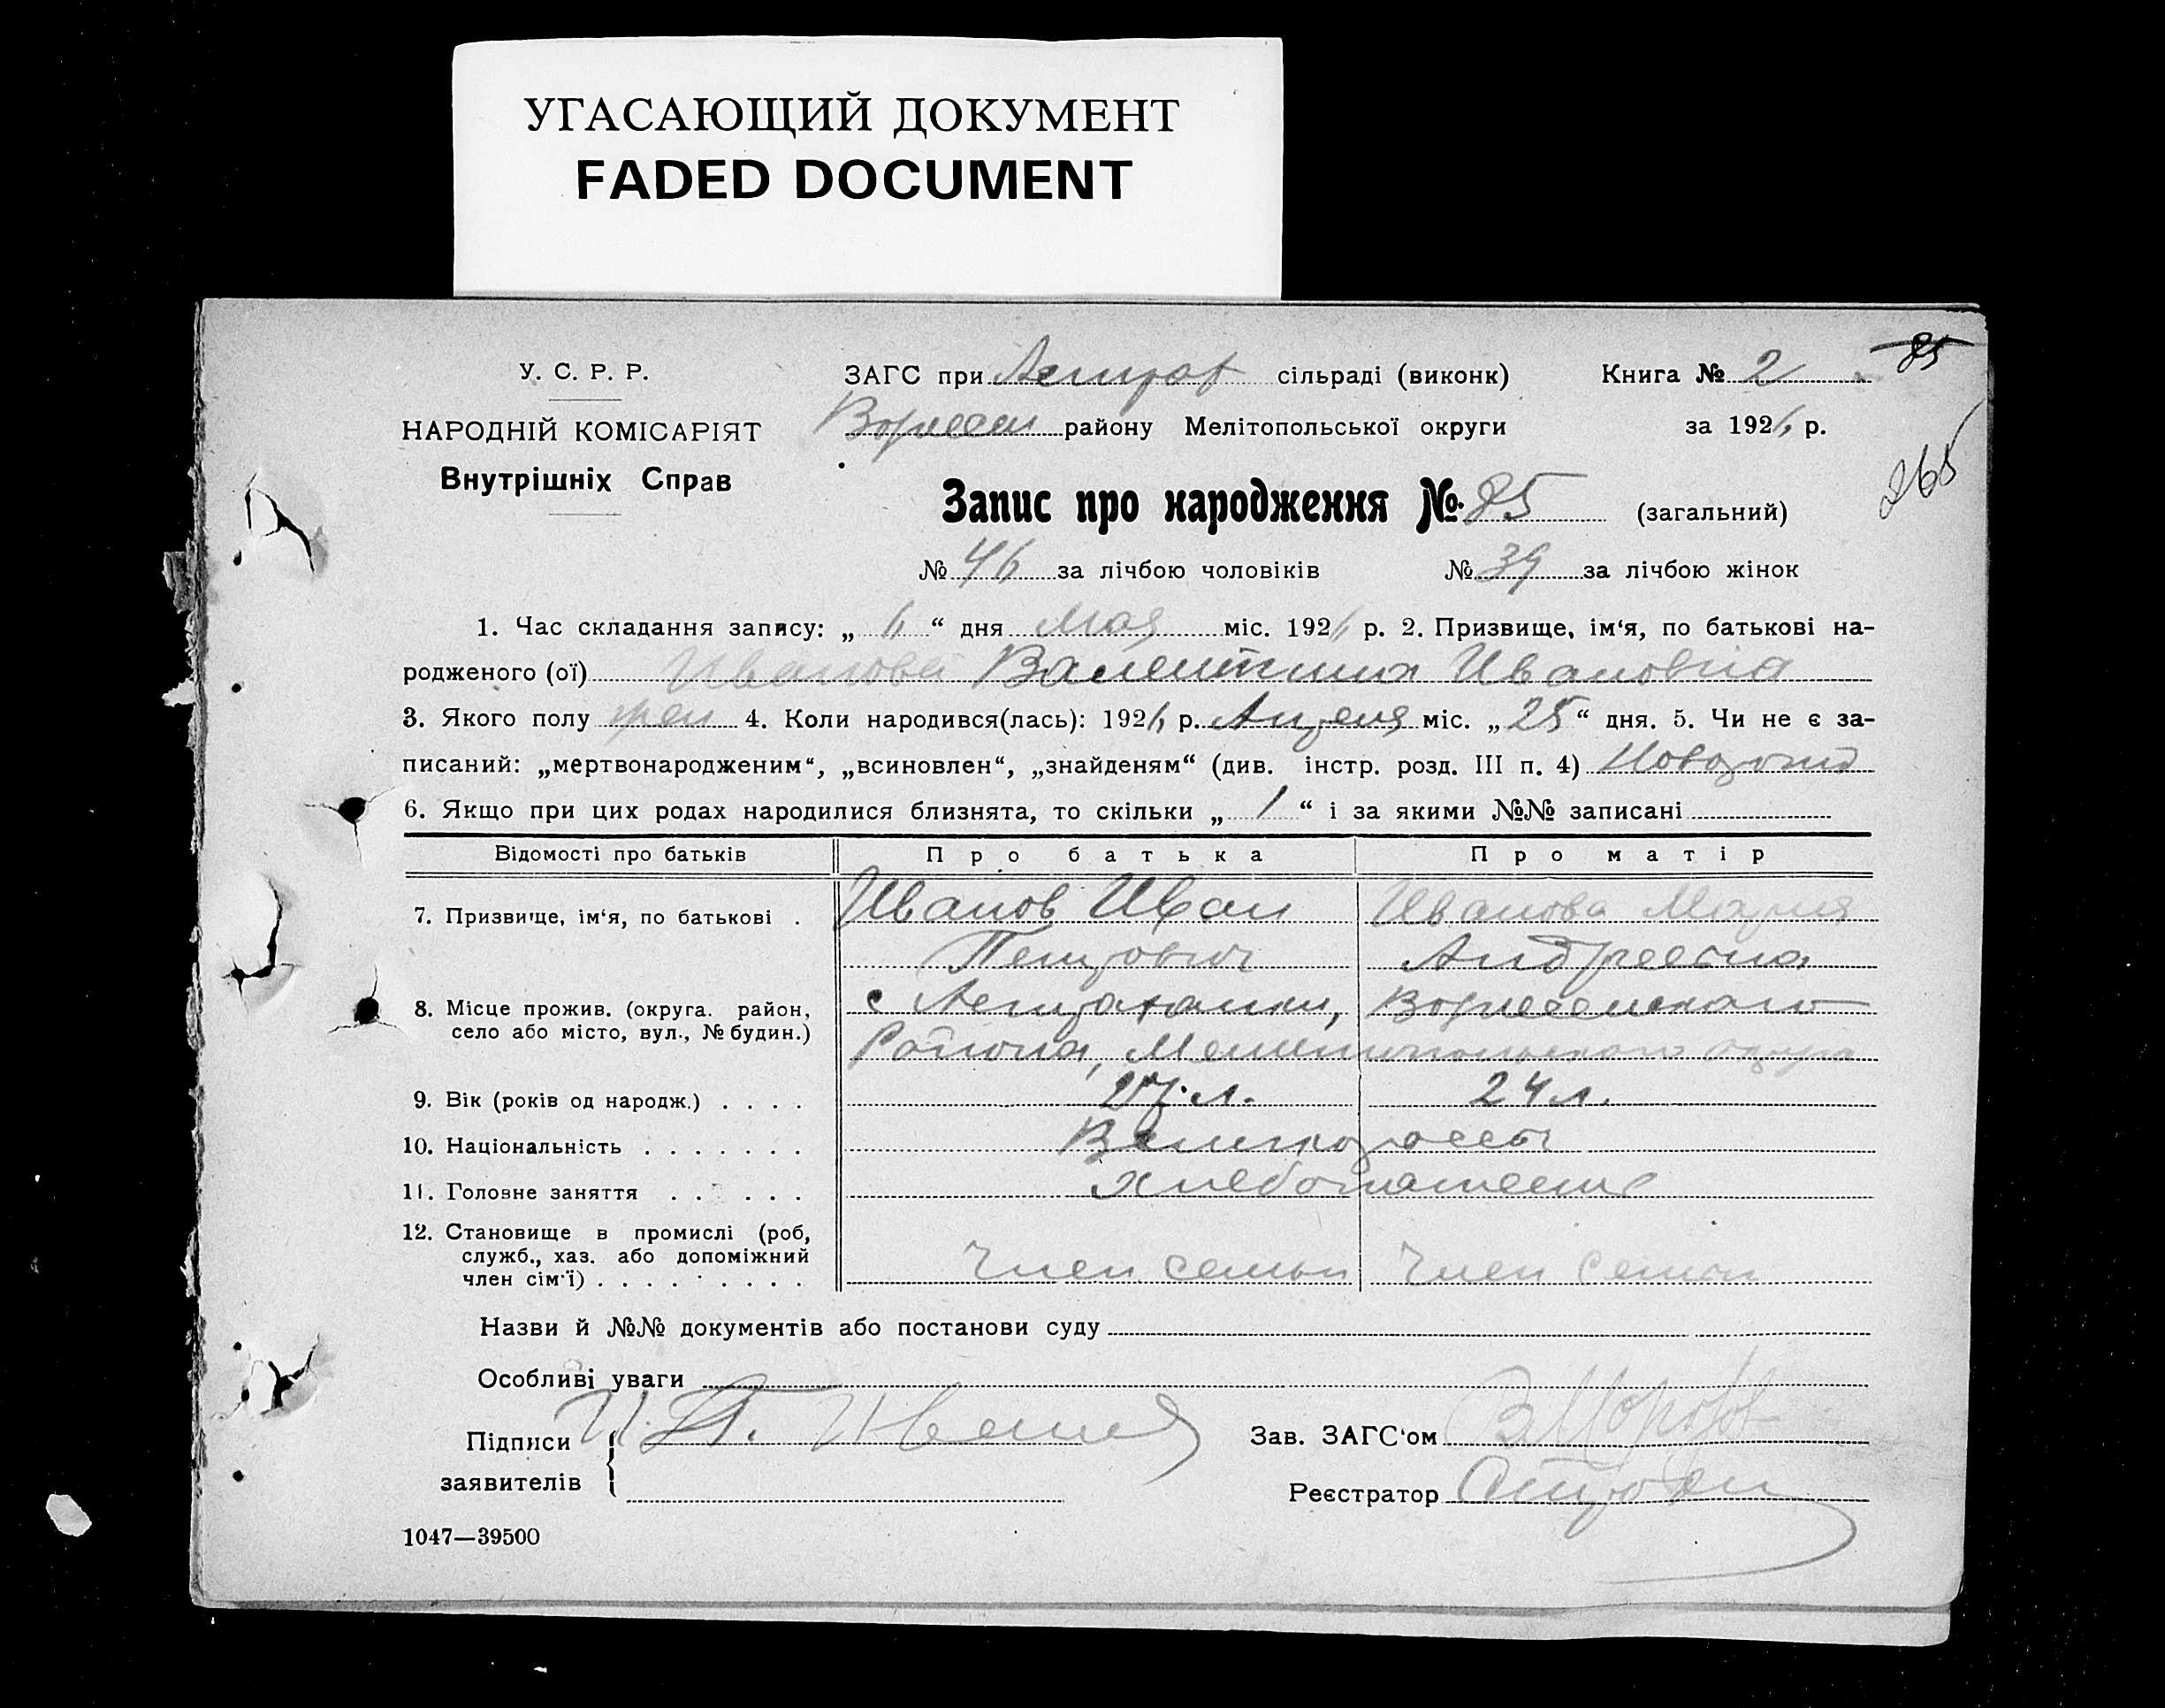 УГАСАЮЩИЙ ДОКУМЕНТ
FADED DOCUMENT
85
У. С. Р. Р.
ЗАГС при Астрах сільраді (виконк)
Книга № 2
Вознесен району Мелітопольської округи
за 1926 р.
НАРОДНІЙ КОМІСАРІЯТ
Внутрішніх Справ
265
Запис про народження № 85 (загальний)
№ 46 за лічбою чоловіків № 39 за лічбою жінок
1. Час складання запису: „ 6 “ дня Мая міс. 1926 р. 2. Призвище, ім‘я, по батькові на-
родженого (ої) Иванова Валентина Ивановна
3. Якого полу жен 4. Коли народився(лась): 1926 р. Апреля міс. „ 25 “ дня. 5. Чи не є за-
писаний: „мертвонародженим“, „всиновлен“, „знайденям“ (див. інстр. розд. III п. 4)
6. Якщо при цих родах народилися близнята, то скільки „ 1 “ і за якими №№ записані
Відомості про батьків Про батька Про матір
7. Призвище, ім‘я, по батькові . Иванов Иван Иванова Мария
Петрович Андреевна
8. Місце прожив. (округа. район, с Астраханки, Вознесенского
село або місто, вул., № будин.) Района, Мелитопольского округа
9. Вік (років од народж.) . . . . 27 л. 24 л.
10. Національність . . . . . . . Великороссы
11. Головне заняття . . . . . . хлебопашество
12. Становище в промислі (роб,
служб., хаз. або допоміжний
член сім‘ї) . . . . . . . . . Член семьи Член семьи
Назви й №№ документів або постанови суду
Особливі уваги
Підписи И. П. Иванов
заявителів
Зав. ЗАГС‘ом
Реєстратор
1047—39500